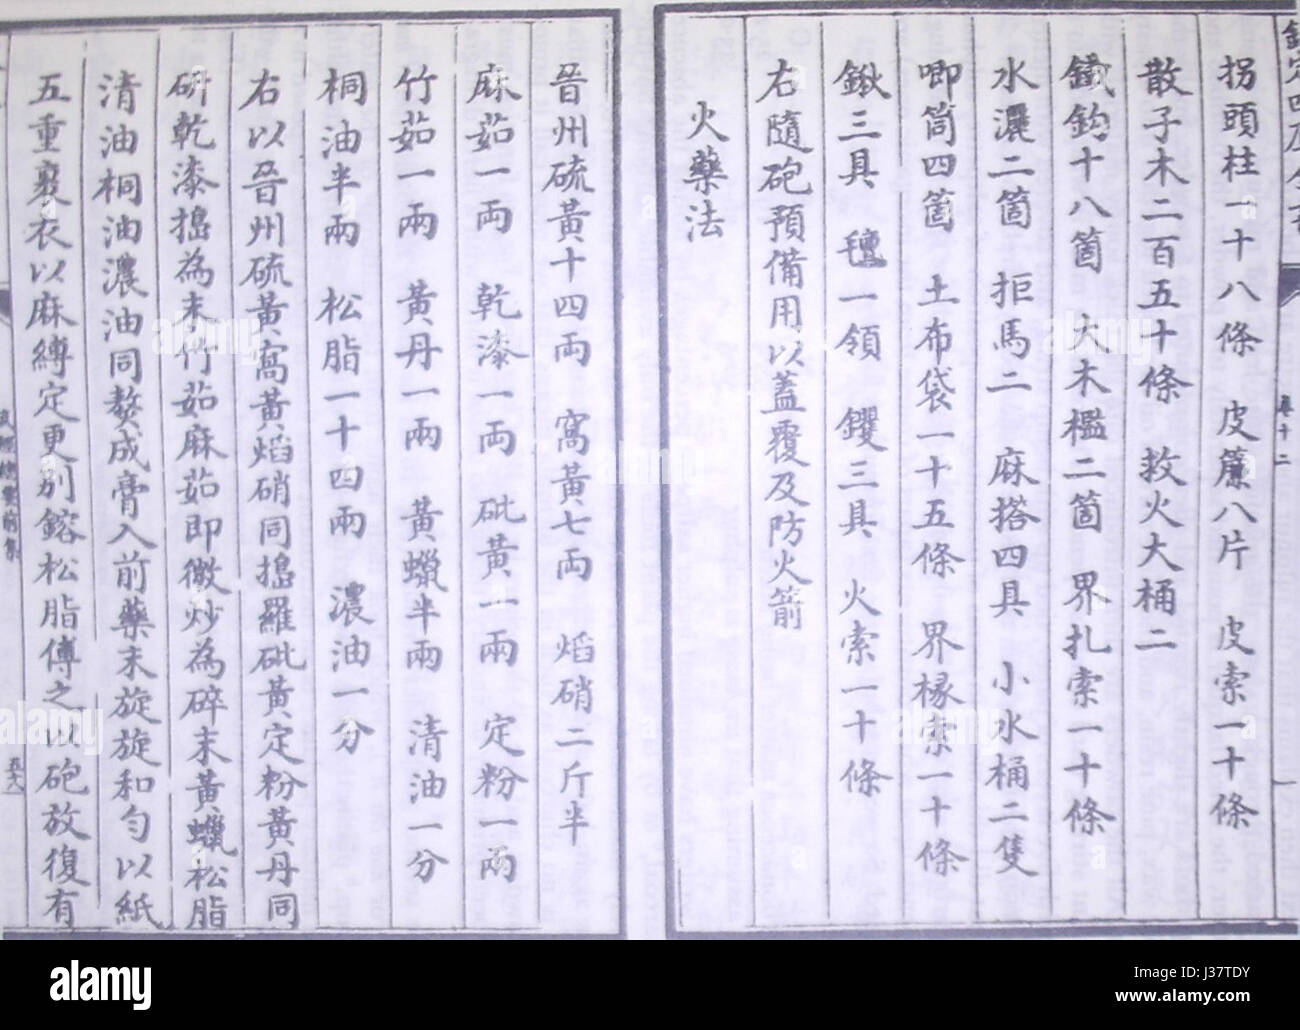 欽定四庫全書
卷十二
拐頭柱一十八條 皮簾八片 皮索一十條
散子木二百五十條 救火大桶二
鐵鉤十八箇 大木檻二箇 界扎索一十條
水濡二箇 拒馬二 麻搭四具 小水桶二隻
唧筒四箇 土布袋一十五條 界椽索一十條
鍬三具 氊一領 钁三具 火索一十條
右隨砲預備用以蓋覆及防火箭
火藥法
晉州硫黃十四兩 窩黃七兩 焰硝二斤半
麻茹一兩 乾漆一兩 砒黃一兩 定粉一兩
竹茹一兩 黃丹一兩 黃蠟半兩 清油一分
桐油半兩 松脂一十四兩 濃油一分
右以晉州硫黃窩黃焰硝同搗羅砒黃定粉黃丹同
研乾漆搗為末竹茹麻茹即微炒為碎末黃蠟松脂
清油桐油濃油同熬成膏入前藥末旋旋和勻以紙
五重裹衣以麻縛定更別鎔松脂傅之以砲放復有
武經總要前集
alamy
J37TDY
www.alamy.com